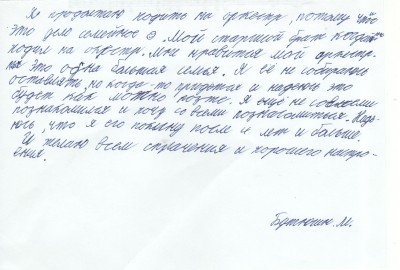 Я продолжаю ходить на оркестр, потому что
это дело семейное☺ Мой старший брат когда-то
ходил на оркестр. Мне нравится мой оркестр-
это одна большая семья. Я её не собираюсь
оставлять, но когда-то придётся и надеюсь это
будет как можно позже. Я ещё не со всеми
познакомился и хочу со всеми познакомиться. Наде-
юсь, что я его покину после 4 лет и больше.
И желаю всем спрачения и хорошего настро-
ения.
М.